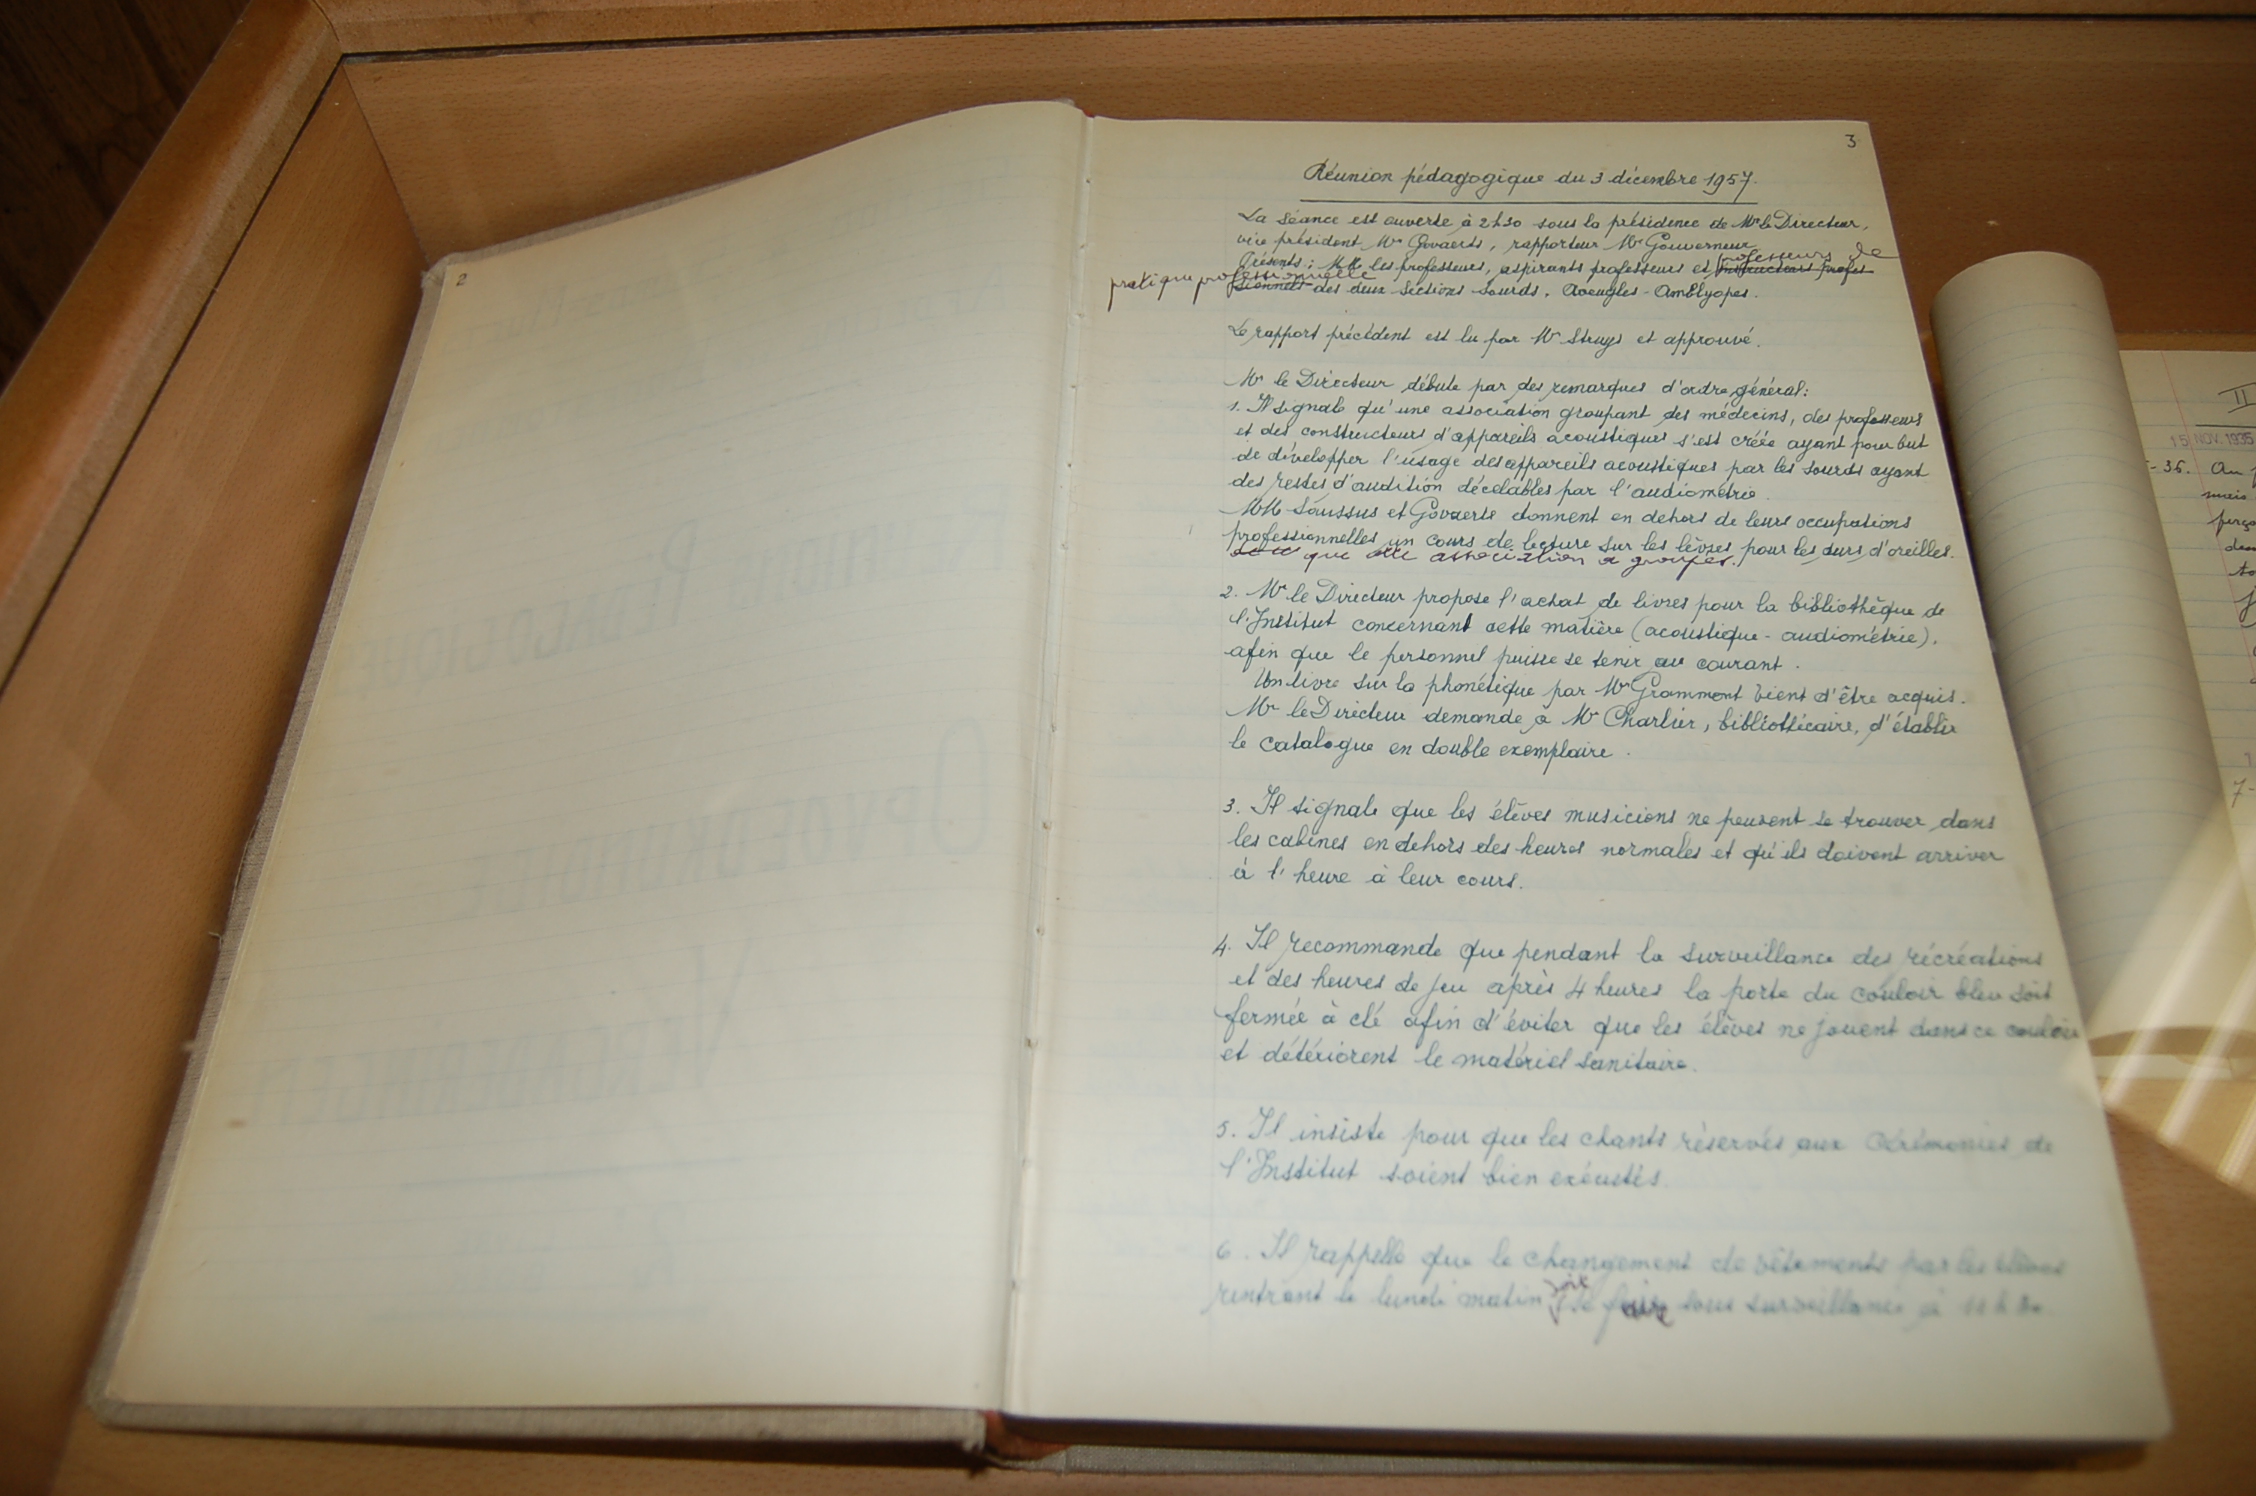 2
3
Réunion pédagogique du 3 décembre 1957.
La séance est ouverte à 2h30 sous la présidence de Mr le Directeur,
vice président Mr Govaerts, rapporteur Mr Gouverneur
Présents : MM les professeurs, aspirants professeurs et instructeurs profes
professeurs de
pratique professionnelle
sionnels des deux sections sourds. Aveugles - Amblyopes.
Le rapport précédent est lu par Mr Struys et approuvé.
Mr le Directeur débute par des remarques d'ordre général:
1. Il signale qu'une association groupant des médecins, des professeurs
et des constructeurs d'appareils acoustiques s'est créée ayant pour but
de développer l'usage des appareils acoustiques par les sourds ayant
des restes d'audition décelables par l'audiométrie.
MM Saussus et Govaerts donnent en dehors de leurs occupations
professionnelles un cours de lecture sur les lèvres pour les durs d'oreilles.
que association a groupés.
2. Mr le Directeur propose l'achat de livres pour la bibliothèque de
l'Institut concernant cette matière (acoustique - audiométrie).
afin que le personnel puisse se tenir au courant.
Un livre sur la phonétique par Mr Grammont vient d'être acquis.
Mr le Directeur demande à Mr Charlier, bibliothécaire, d'établir
le catalogue en double exemplaire.
3. Il signale que les élèves musiciens ne peuvent se trouver dans
les cabines en dehors des heures normales et qu'ils doivent arriver
à l'heure à leur cours.
4. Il recommande que pendant la surveillance des récréations
et des heures de jeu après 4 heures la porte du couloir bleu soit
fermée à clé afin d'éviter que les élèves ne jouent dans ce couloir
et détériorent le matériel sanitaire.
5. Il insiste pour que les chants réservés aux cérémonies de
l'Institut soient bien exécutés.
6. Il rappelle que le changement de vêtements par les élèves
rentrant le lundi matin doit se faire sous surveillance à
II
15 NOV. 1935
- 36. Au
mais
7-